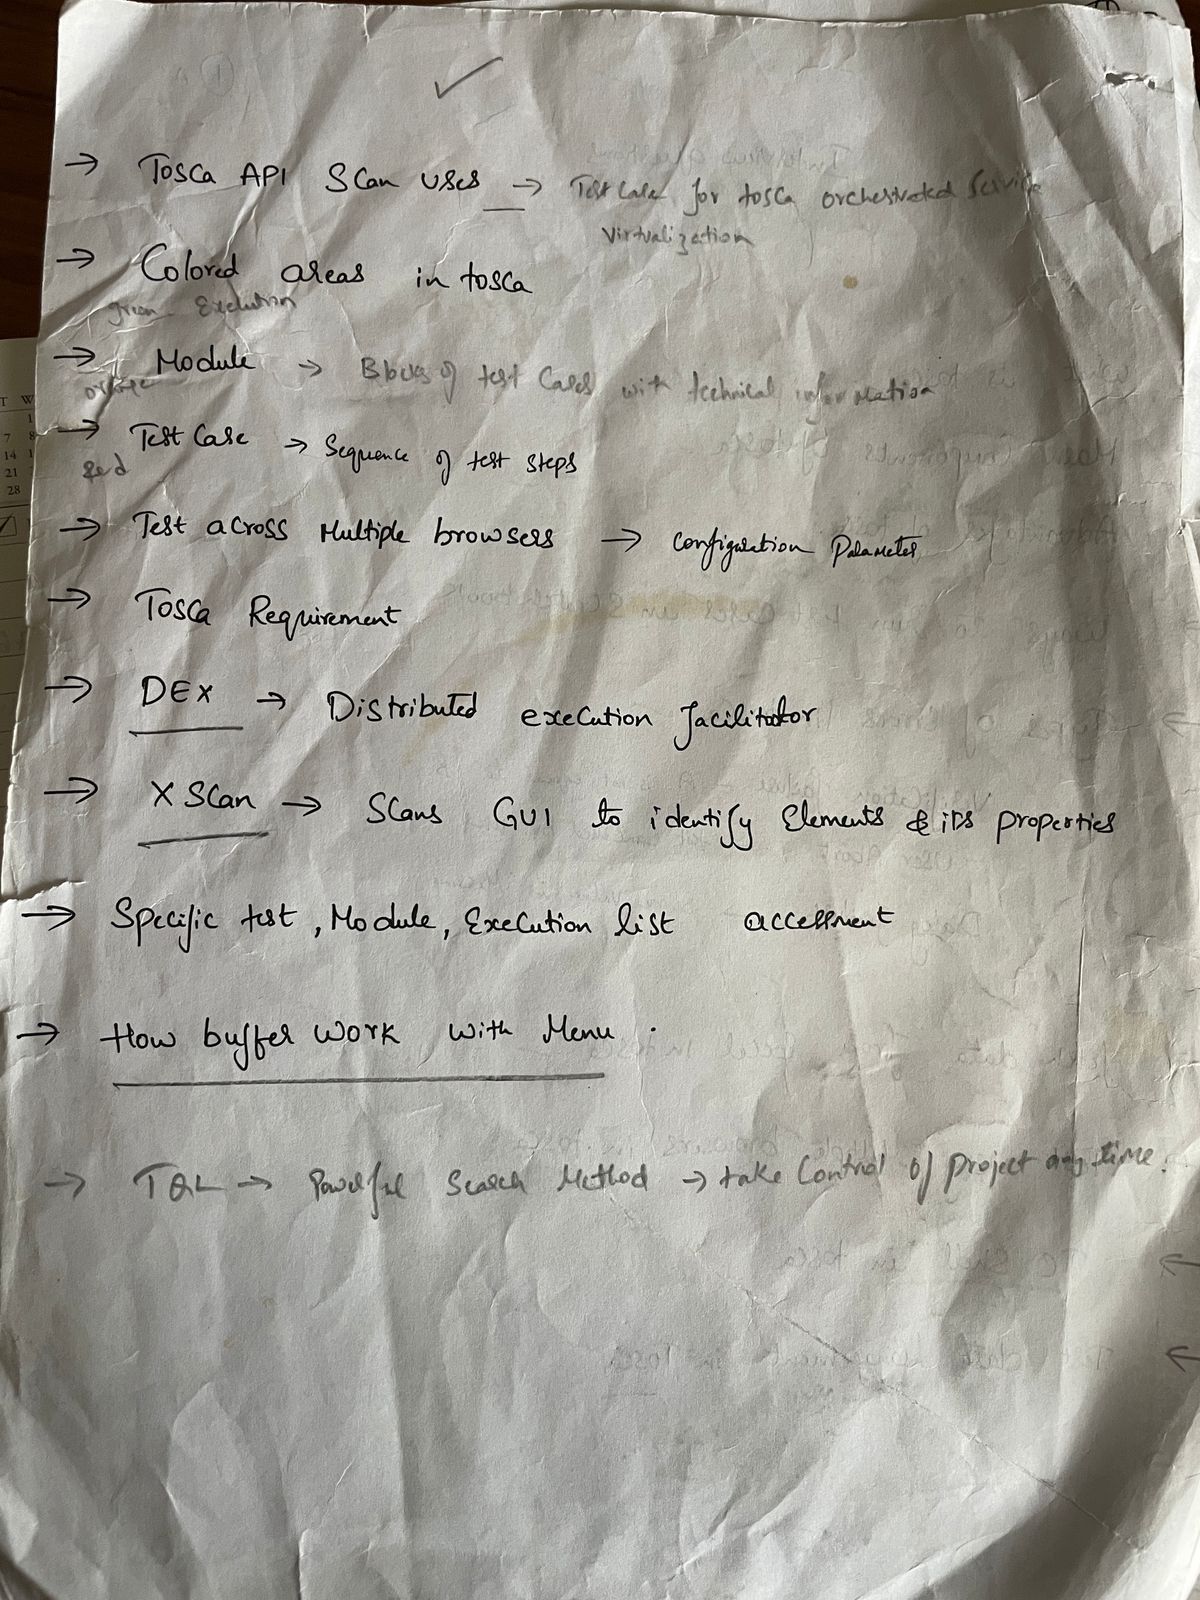 → Tosca API Scan uses → Test Case for tosca orchestrated Service
Virtualization
→ Colored areas in tosca
green - Execution
→ Module → Blocks of test Cases with technical information
orange
→ Test Case → Sequence of test steps
Red
→ Test across Multiple browsers → Configuration Parameter
→ Tosca Requirement
→ DEX → Distributed execution facilitator
→ X Scan → Scans GUI to identify Elements & its properties
→ Specific test, Module, Execution list accessment
→ How buffer work with Menu.
→ TQL → Powerful Search Method → take Control of project any time.